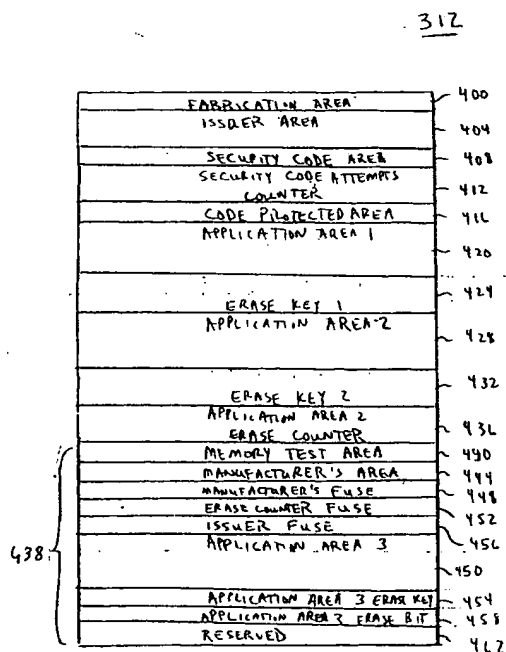 312
FABRICATION AREA 400
ISSUER AREA 404
SECURITY CODE AREA 408
SECURITY CODE ATTEMPTS
COUNTER 412
CODE PROTECTED AREA 416
APPLICATION AREA 1 420
ERASE KEY 1 424
APPLICATION AREA 2 428
ERASE KEY 2 432
APPLICATION AREA 2
ERASE COUNTER 436
438
MEMORY TEST AREA 440
MANUFACTURER'S AREA 444
MANUFACTURER'S FUSE 448
ERASE COUNTER FUSE 452
ISSUER FUSE 456
APPLICATION AREA 3 450
APPLICATION AREA 3 ERASE KEY 454
APPLICATION AREA 3 ERASE BIT 458
RESERVED 462